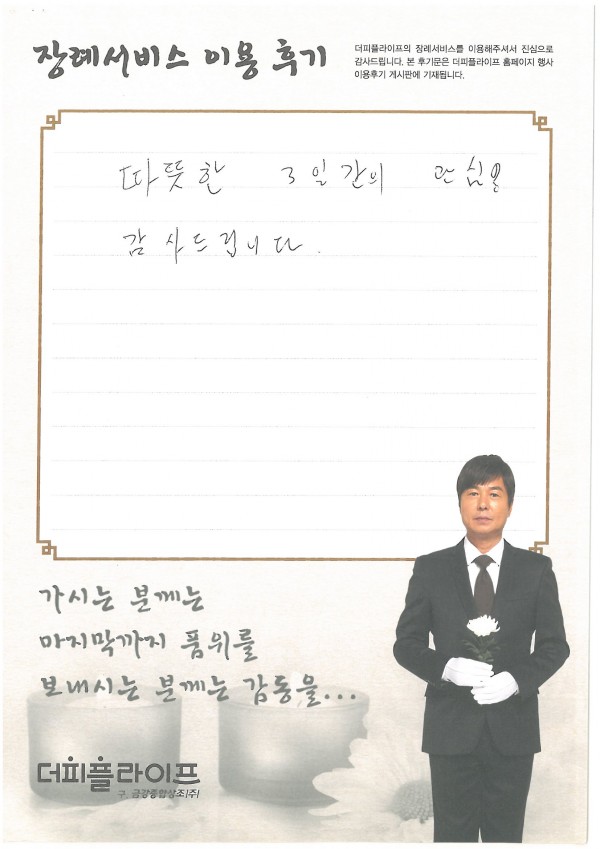 장례서비스 이용 후기
더피플라이프의 장례서비스를 이용해주셔서 진심으로
감사드립니다. 본 후기문은 더피플라이프 홈페이지 행사
이용후기 게시판에 기재됩니다.
따뜻한 3일간의 관심을
감사드립니다.
가시는 분께는
마지막까지 품위를
보내시는 분께는 감동을...
더피플라이프
구. 금강종합상조(주)